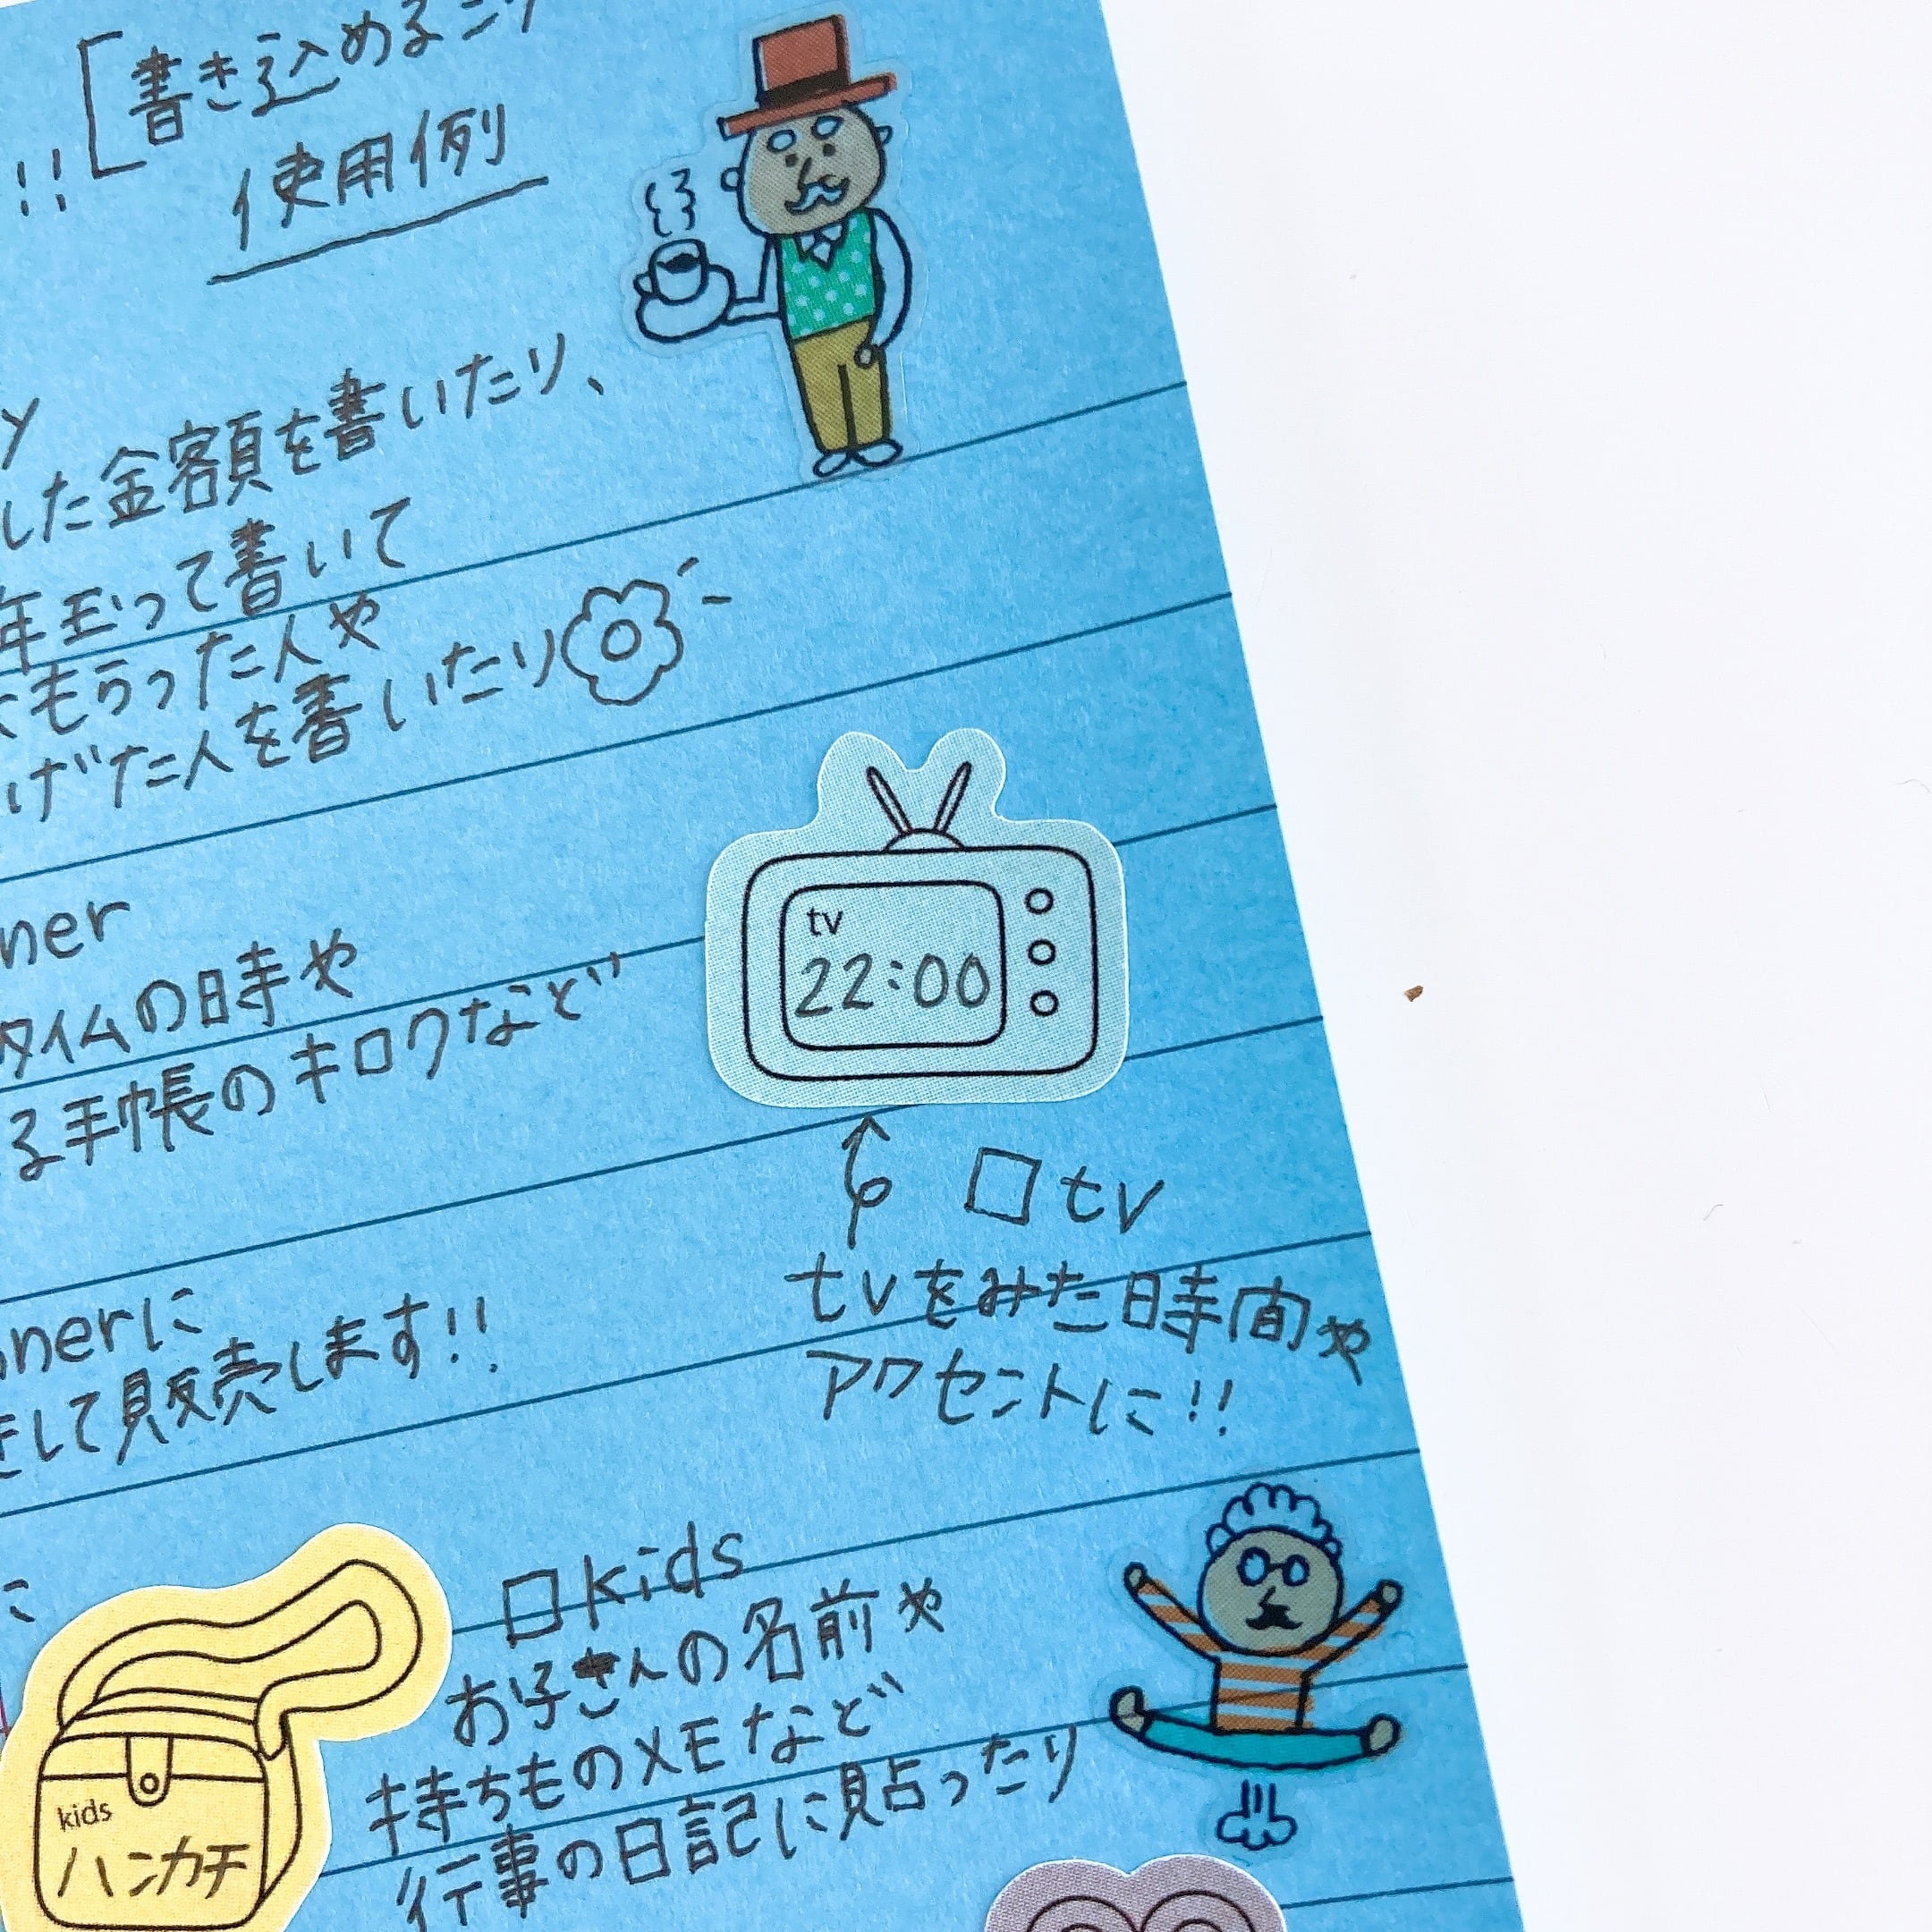 [書き込める
使用例
!!
した金額を書いたり、
年玉って書いて
もらった人や
げた人を書いたり
ner
タイムの時や
る手帳のキロクなど
tv
22:00
□tv
tvをみた時間や
アクセントに!!
nerに
して販売します!!
に
□kids
お子さんの名前や
持ちもののメモなど
行事の日記に貼ったり
kids
ハンカチ